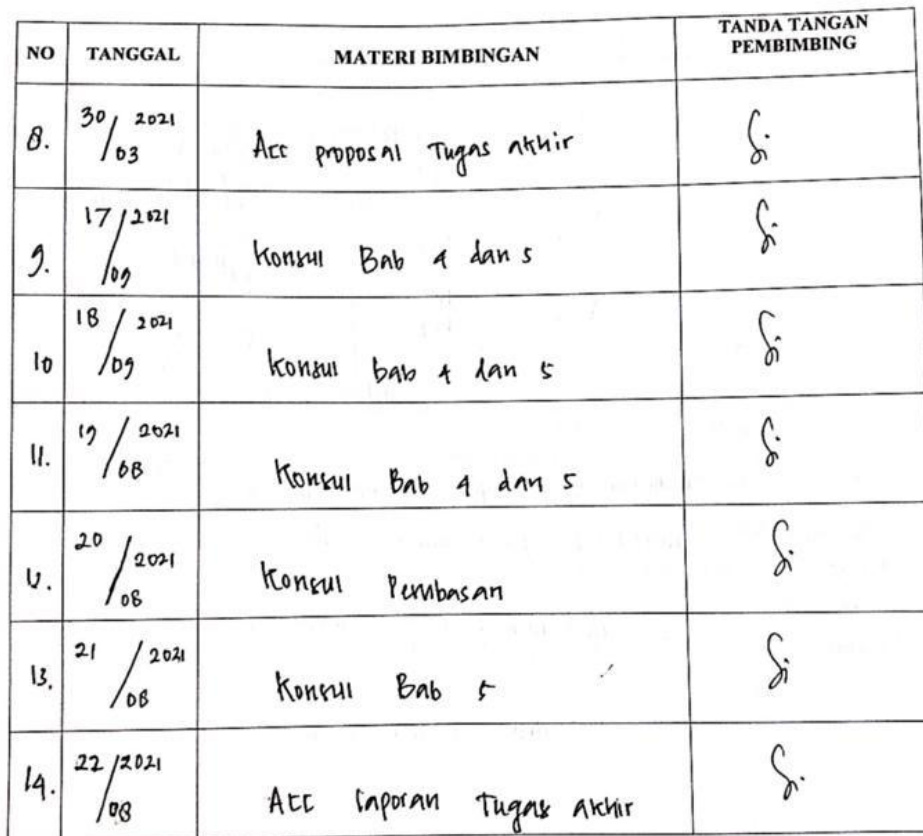 NO TANGGAL MATERI BIMBINGAN TANDA TANGAN PEMBIMBING
8. 30/03 2021 Acc proposal Tugas akhir
9. 17/09 2021 Konsul Bab 4 dan 5
10 18/09 2021 Konsul bab 4 dan 5
11. 19/08 2021 Konsul Bab 4 dan 5
12. 20/08 2021 Konsul
13. 21/08 2021 Konsul Bab 5
14. 22/08 2021 Acc laporan Tugas akhir